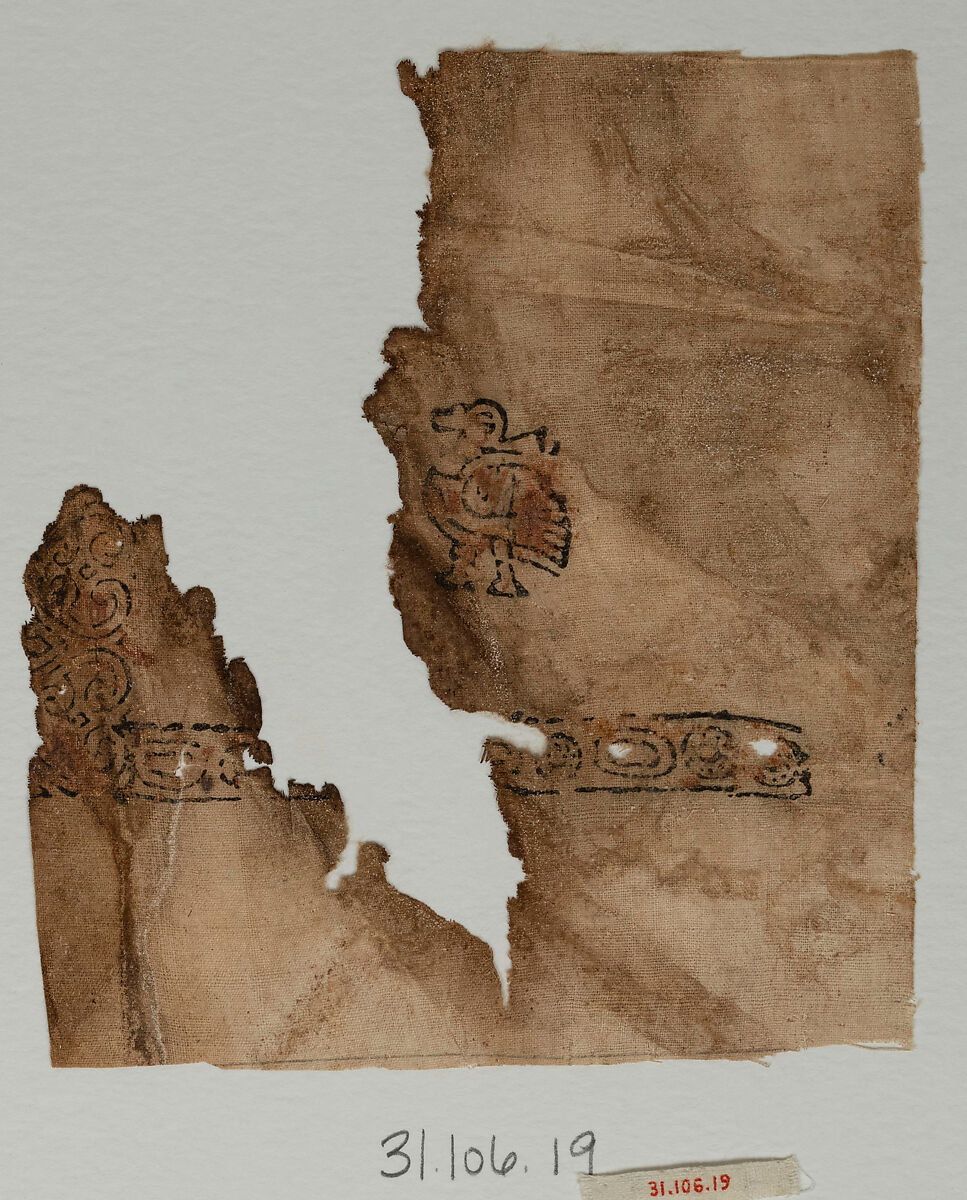 31.106.19
31.106.19